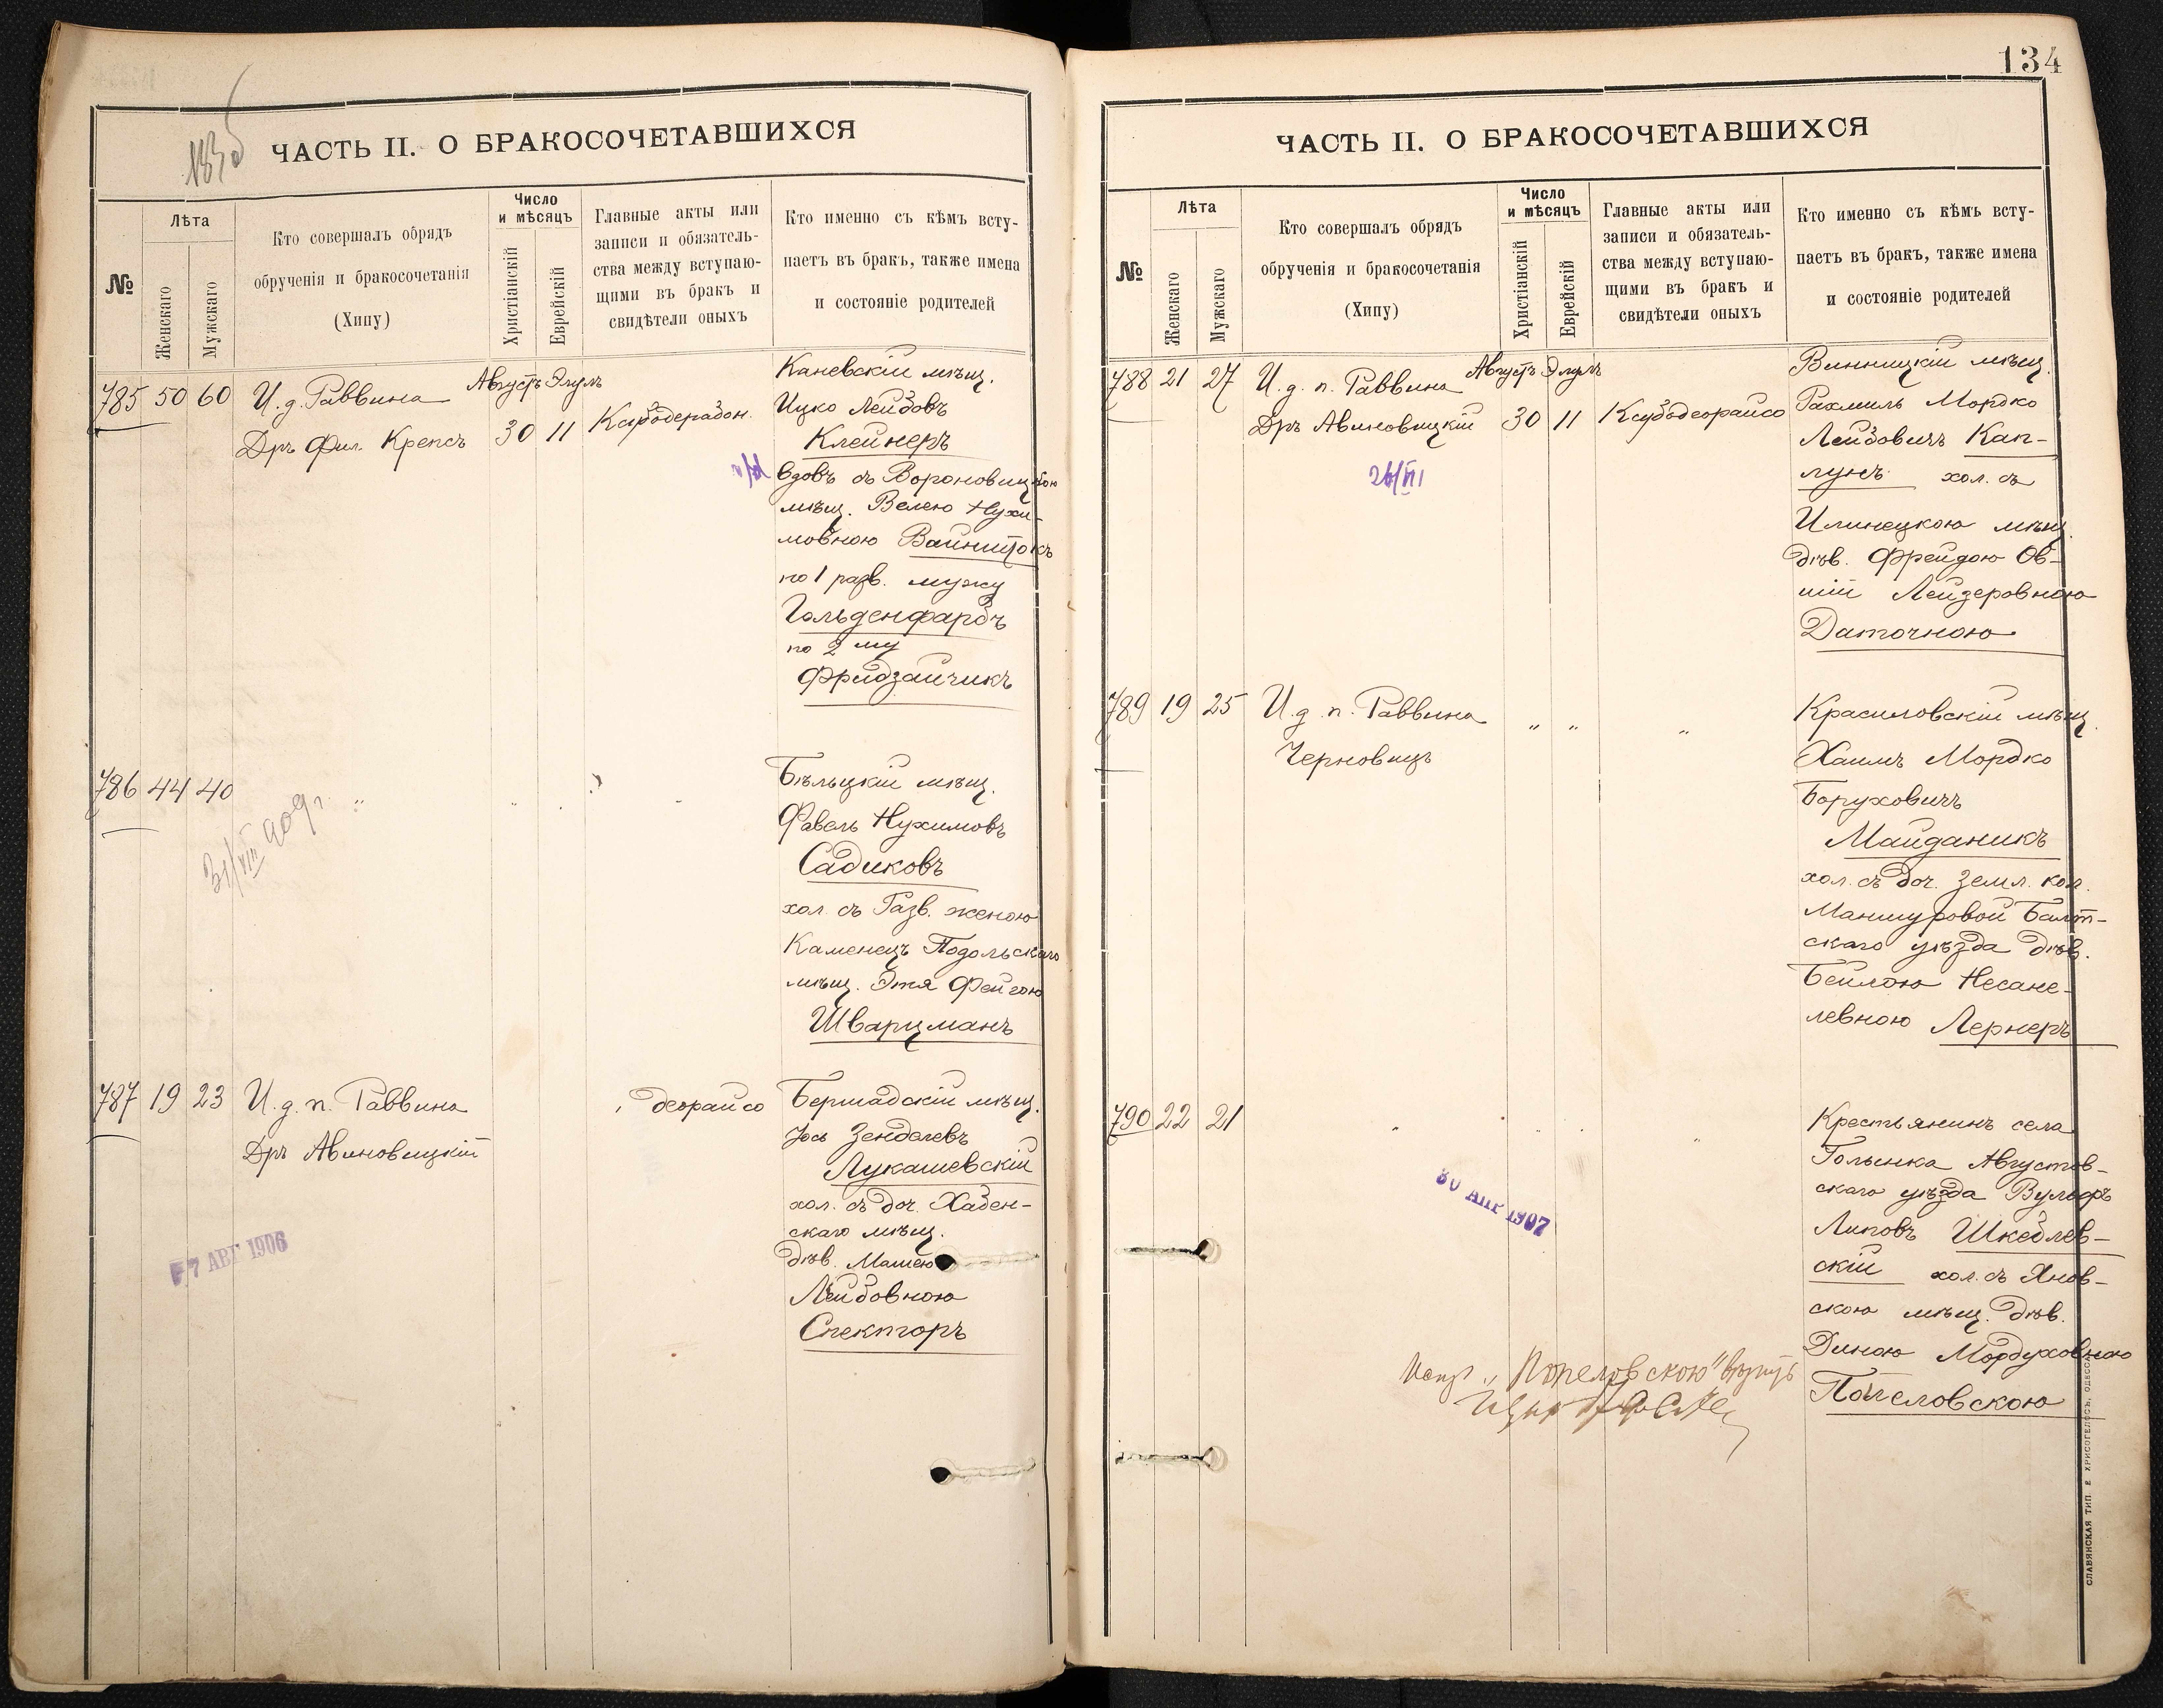 ЧАСТЬ II. О БРАКОСОЧЕТАВШИХСЯ
№
Лѣта
Женскаго
Мужскаго
Кто совершалъ обрядъ
обрученія и бракосочетанія
(Хипу)
Число
и мѣсяцъ
Христіанскій
Еврейскій
Главные акты или
записи и обязатель-
ства между вступаю-
щими въ бракъ и
свидѣтели оныхъ
Кто именно съ кѣмъ всту-
паетъ въ бракъ, также имена
и состояніе родителей
785 50 60
И. д. Раввина
Дръ Фил. Крепсъ
Августъ Элулъ
30 11
Каневскій мѣщ.
Ицко Лейбовъ
Клейнеръ
вдовъ съ Вороновицкою
мѣщ. Велею Нухи-
мовною Вайнштокъ
по 1 разв. мужу
Гольденфарбъ
по 2 му
Фридзайчикъ
786 44 40
31/VIII 909 г.
Бѣльцкій мѣщ.
Фавель Нухимовъ
Садиковъ
хол. съ Разв. женою
Каменецъ Подольскаго
мѣщ. Этя Фейгою
Шварцманъ
787 19 23
И. д. п. Раввина
Дръ Авиновицкій
деорайсо
7 АВГ 1906
Бершадскій мѣщ.
Іось Зенделевъ
Лукашевскій
хол. съ доч. Хабен-
скаго мѣщ.
дѣв. Машею
Лейбовною
Спекторъ
134
ЧАСТЬ II. О БРАКОСОЧЕТАВШИХСЯ
№
Лѣта
Женскаго
Мужскаго
Кто совершалъ обрядъ
обрученія и бракосочетанія
(Хипу)
Число
и мѣсяцъ
Христіанскій
Еврейскій
Главные акты или
записи и обязатель-
ства между вступаю-
щими въ бракъ и
свидѣтели оныхъ
Кто именно съ кѣмъ всту-
паетъ въ бракъ, также имена
и состояніе родителей
788 21 27
И. д. п. Раввина
Дръ Авиновицкій
Августъ Элулъ
30 11
Ксубодеорайсо
Винницкій мѣщ.
Рахмиль Мордко
Лейбовичъ Кап-
лунъ хол. съ
Илинецкою мѣщ.
дѣв. Фрейдою Ов-
шій Лейзеровною
Даточною
789 19 25
И. д. п. Раввина
Черновицъ
" " "
Красиловскій мѣщ.
Хаимъ Мордко
Боруховичъ
Майданикъ
хол. съ доч. земл. кол.
Маншуровой Балт-
скаго уѣзда дѣв.
Бейлою Несане-
левною Лернеръ
790 22 21
30 АПР 1907
Крестьянинъ села
Голынка Августов-
скаго уѣзда Вульфъ
Липовъ Шкедлев-
скій хол. съ Янов-
скою мѣщ. дѣв.
Диною Мордуховною
Попеловскою
"Попеловскою"
СЛАВЯНСКАЯ ТИП. Е. ХРИСОГЕЛОСЪ, ОДЕССА